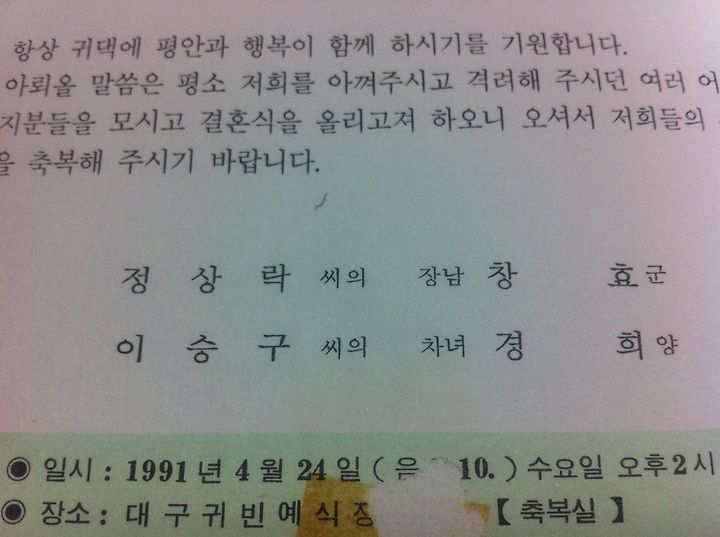 항상 귀댁에 평안과 행복이 함께 하시기를 기원합니다.
아뢰올 말씀은 평소 저희를 아껴주시고 격려해 주시던 여러 어
지분들을 모시고 결혼식을 올리고져 하오니 오셔서 저희들의
을 축복해 주시기 바랍니다.
정 상 락 씨의 장남 창 효 군
이 승 구 씨의 차녀 경 희 양
◉ 일시 : 1991 년 4 월 24 일 ( 음 10. ) 수요일 오후 2 시
◉ 장소 : 대 구 귀 빈 예 식 장 【 축복실 】